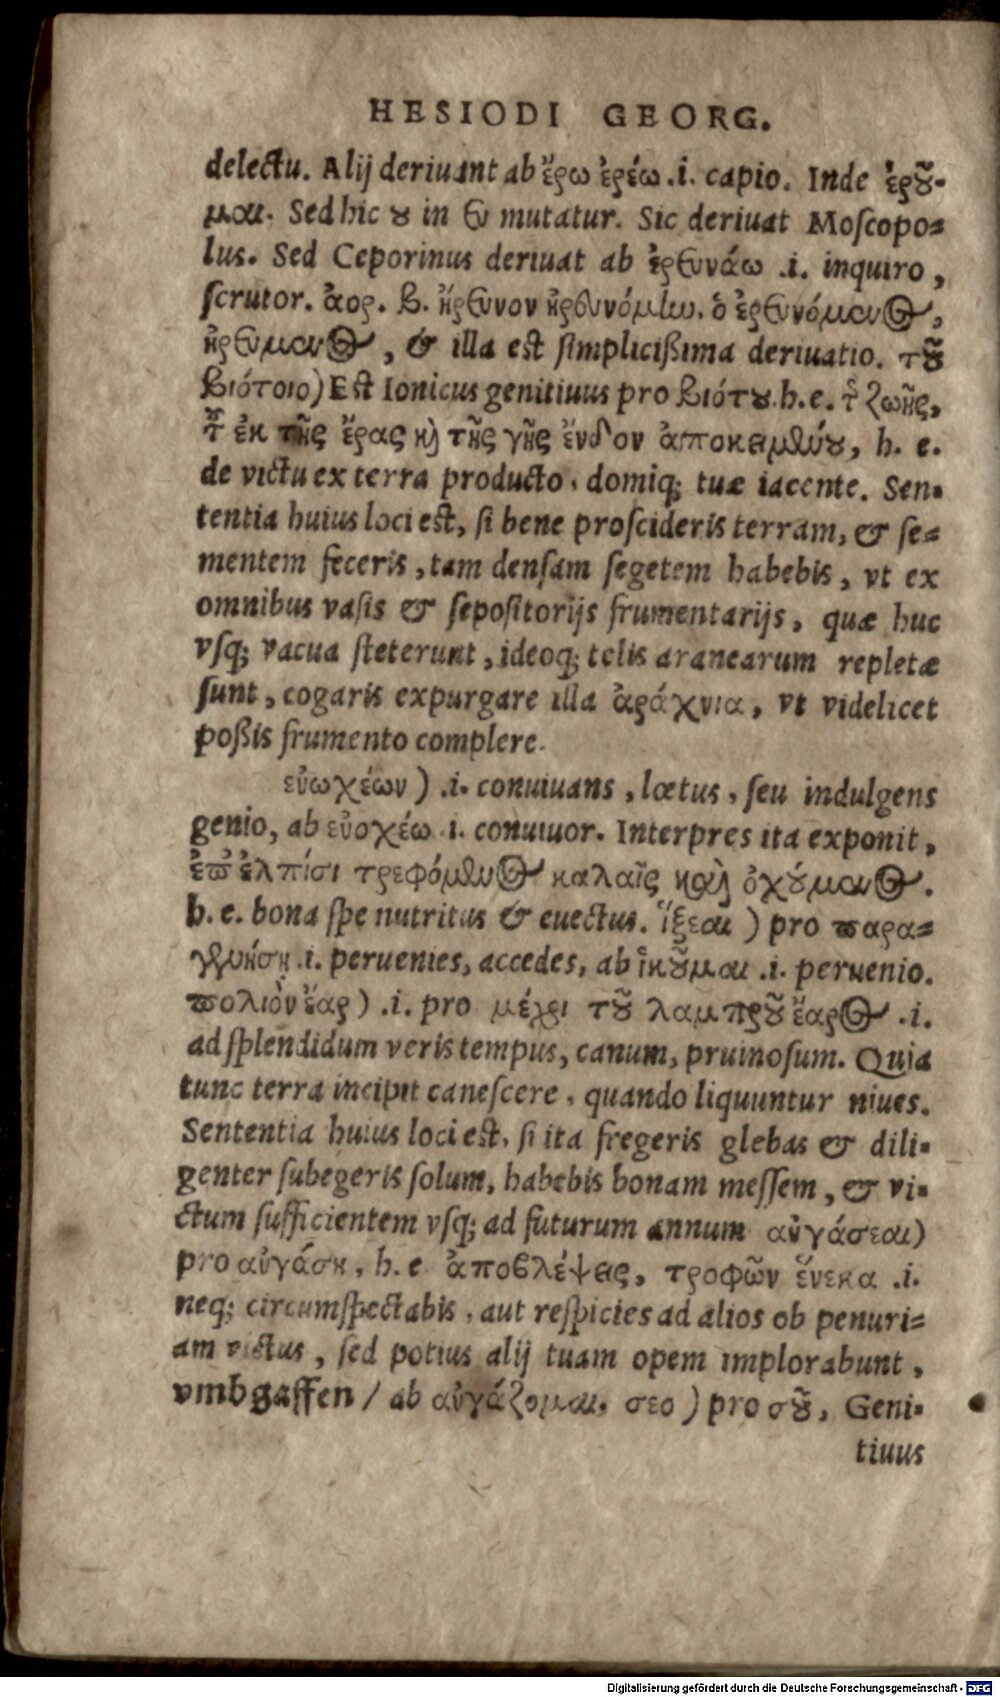 HESIODI GEORG.
delectu. Alij deriuant ab ἔρω ἐρέω .i. capio. Inde ἐρȣ͂-
μαι. Sed hic ȣ in ευ mutatur. Sic deriuat Moſcopo=
lus. Sed Ceporinus deriuat ab ἐρευνάω .i. inquiro,
ſcrutor. ἀορ. β. ἤρευνον ἠρευνόμην. ὁ ἐρευνόμενος,
ἠρευμενος, & illa est ſimplicißima deriuatio. τȣ͂
βιότοιο) Est Ionicus genitiuus pro βιότȣ. h. e. τ̃ ζωῆς,
τ̃ ἐκ τῆς ἔρας κὶ τῆς γῆς ἔνδον ἀποκειμένȣ, h. e.
de victu ex terra producto, domiq; tuæ iacente. Sen-
tentia huius loci est, ſi bene proſcideris terram, & ſe=
mentem feceris, tam denſam ſegetem habebis, vt ex
omnibus vaſis & ſepoſitorijs frumentarijs, quæ huc
vſq; vacua steterunt, ideoq; telis aranearum repletæ
ſunt, cogaris expurgare illa ἀράχνια, vt videlicet
poßis frumento complere.
εὐωχέων) .i. conuiuans, lætus, ſeu indulgens
genio, ab εὐοχέω i. conuiuor. Interpres ita exponit,
ἐπ' ἐλπίσι τρεφόμενος καλαῖς καὶ ὀχȣ́μενος.
h. e. bona ſpe nutritus & euectus. ἵξεαι) pro παρα=
γενήσῃ .i. peruenies, accedes, ab ἱκȣ͂μαι .i. peruenio.
πολιὸν ἔαρ) .i. pro μέχρι τȣ͂ λαμπρȣ͂ ἔαρος .i.
ad ſplendidum veris tempus, canum, pruinoſum. Quia
tunc terra incipit caneſcere, quando liquuntur niues.
Sententia huius loci est, ſi ita fregeris glebas & dili-
genter ſubegeris ſolum, habebis bonam meſſem, & vi-
ctum ſufficientem vſq; ad futurum annum αὐγάσεαι)
pro αὐγάσῃ, h. e ἀποβλέψεις, τροφῶν ἕνεκα .i.
neq; circumſpectabis, aut reſpicies ad alios ob penuri=
am victus, ſed potius alij tuam opem implorabunt,
vmbgaffen / ab αὐγάζομαι. σεο) pro σȣ͂, Geni-
tiuus
Digitalisierung gefördert durch die Deutsche Forschungsgemeinschaft - DFG